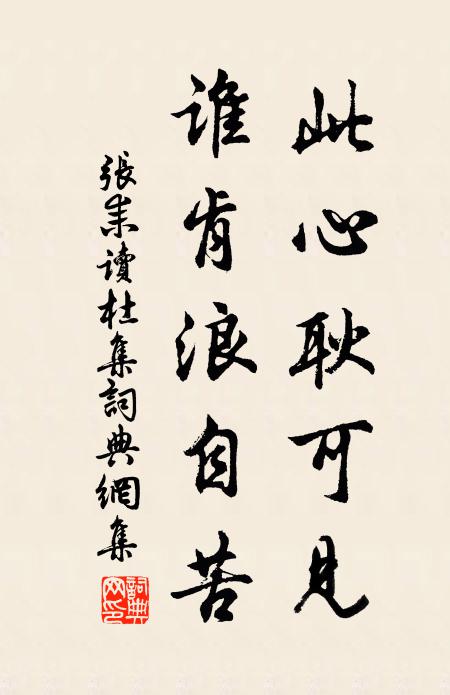 此心耿可見
谁肯浪自苦
張耒讀杜集詞典網集
詞典网印